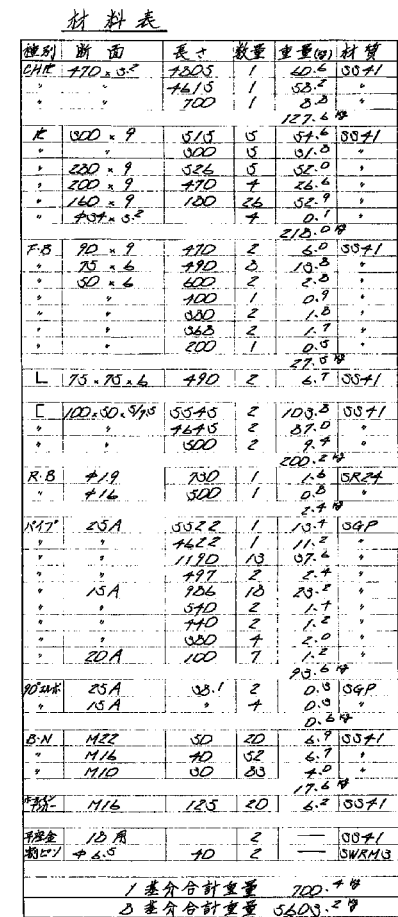 材料表
種別 断面 長さ 数量 重量(kg) 材質
CHPL 470×3.2 4805 1 60.6 SS41
〃 4615 1 58.2 〃
〃 700 1 8.8 〃
127.6 kg
PL 300×9 515 5 54.6 SS41
〃 〃 300 5 31.8 〃
〃 230×9 526 5 52.0 〃
〃 200×9 470 4 26.6 〃
〃 160×9 180 26 52.9 〃
〃 φ34×3.2 4 0.1 〃
218.0 kg
F・B 90×9 470 2 6.0 SS41
〃 75×6 490 8 13.8 〃
〃 50×6 600 2 2.8 〃
〃 〃 400 1 0.9 〃
〃 〃 380 2 1.8 〃
〃 〃 368 2 1.7 〃
〃 〃 200 1 0.5 〃
27.5 kg
L 75×75×6 490 2 6.7 SS41
[ 100×50×5/7.5 5545 2 103.8 SS41
〃 〃 4645 2 87.0 〃
〃 〃 500 2 9.4 〃
200.2 kg
R・B φ19 730 1 1.6 SR24
〃 φ16 500 1 0.8 〃
2.4 kg
パイプ 25A 5522 1 13.4 SGP
〃 〃 4622 1 11.2 〃
〃 〃 1190 13 37.6 〃
〃 〃 497 2 2.4 〃
〃 15A 986 18 23.2 〃
〃 〃 540 2 1.4 〃
〃 〃 440 2 1.2 〃
〃 〃 380 4 2.0 〃
〃 20A 100 7 1.2 〃
93.6 kg
90°エルボ 25A 38.1 2 0.3 SGP
〃 15A 〃 4 0.3 〃
0.6 kg
B・N M22 50 20 6.9 SS41
〃 M16 40 52 6.7 〃
〃 M10 30 83 4.0 〃
17.6 kg
M16 125 20 6.2 SS41
平座金 18用 2 — SS41
割ピン φ6.5 40 2 — SWRM3
1基分合計重量 700.4 kg
8基分合計重量 5603.2 kg